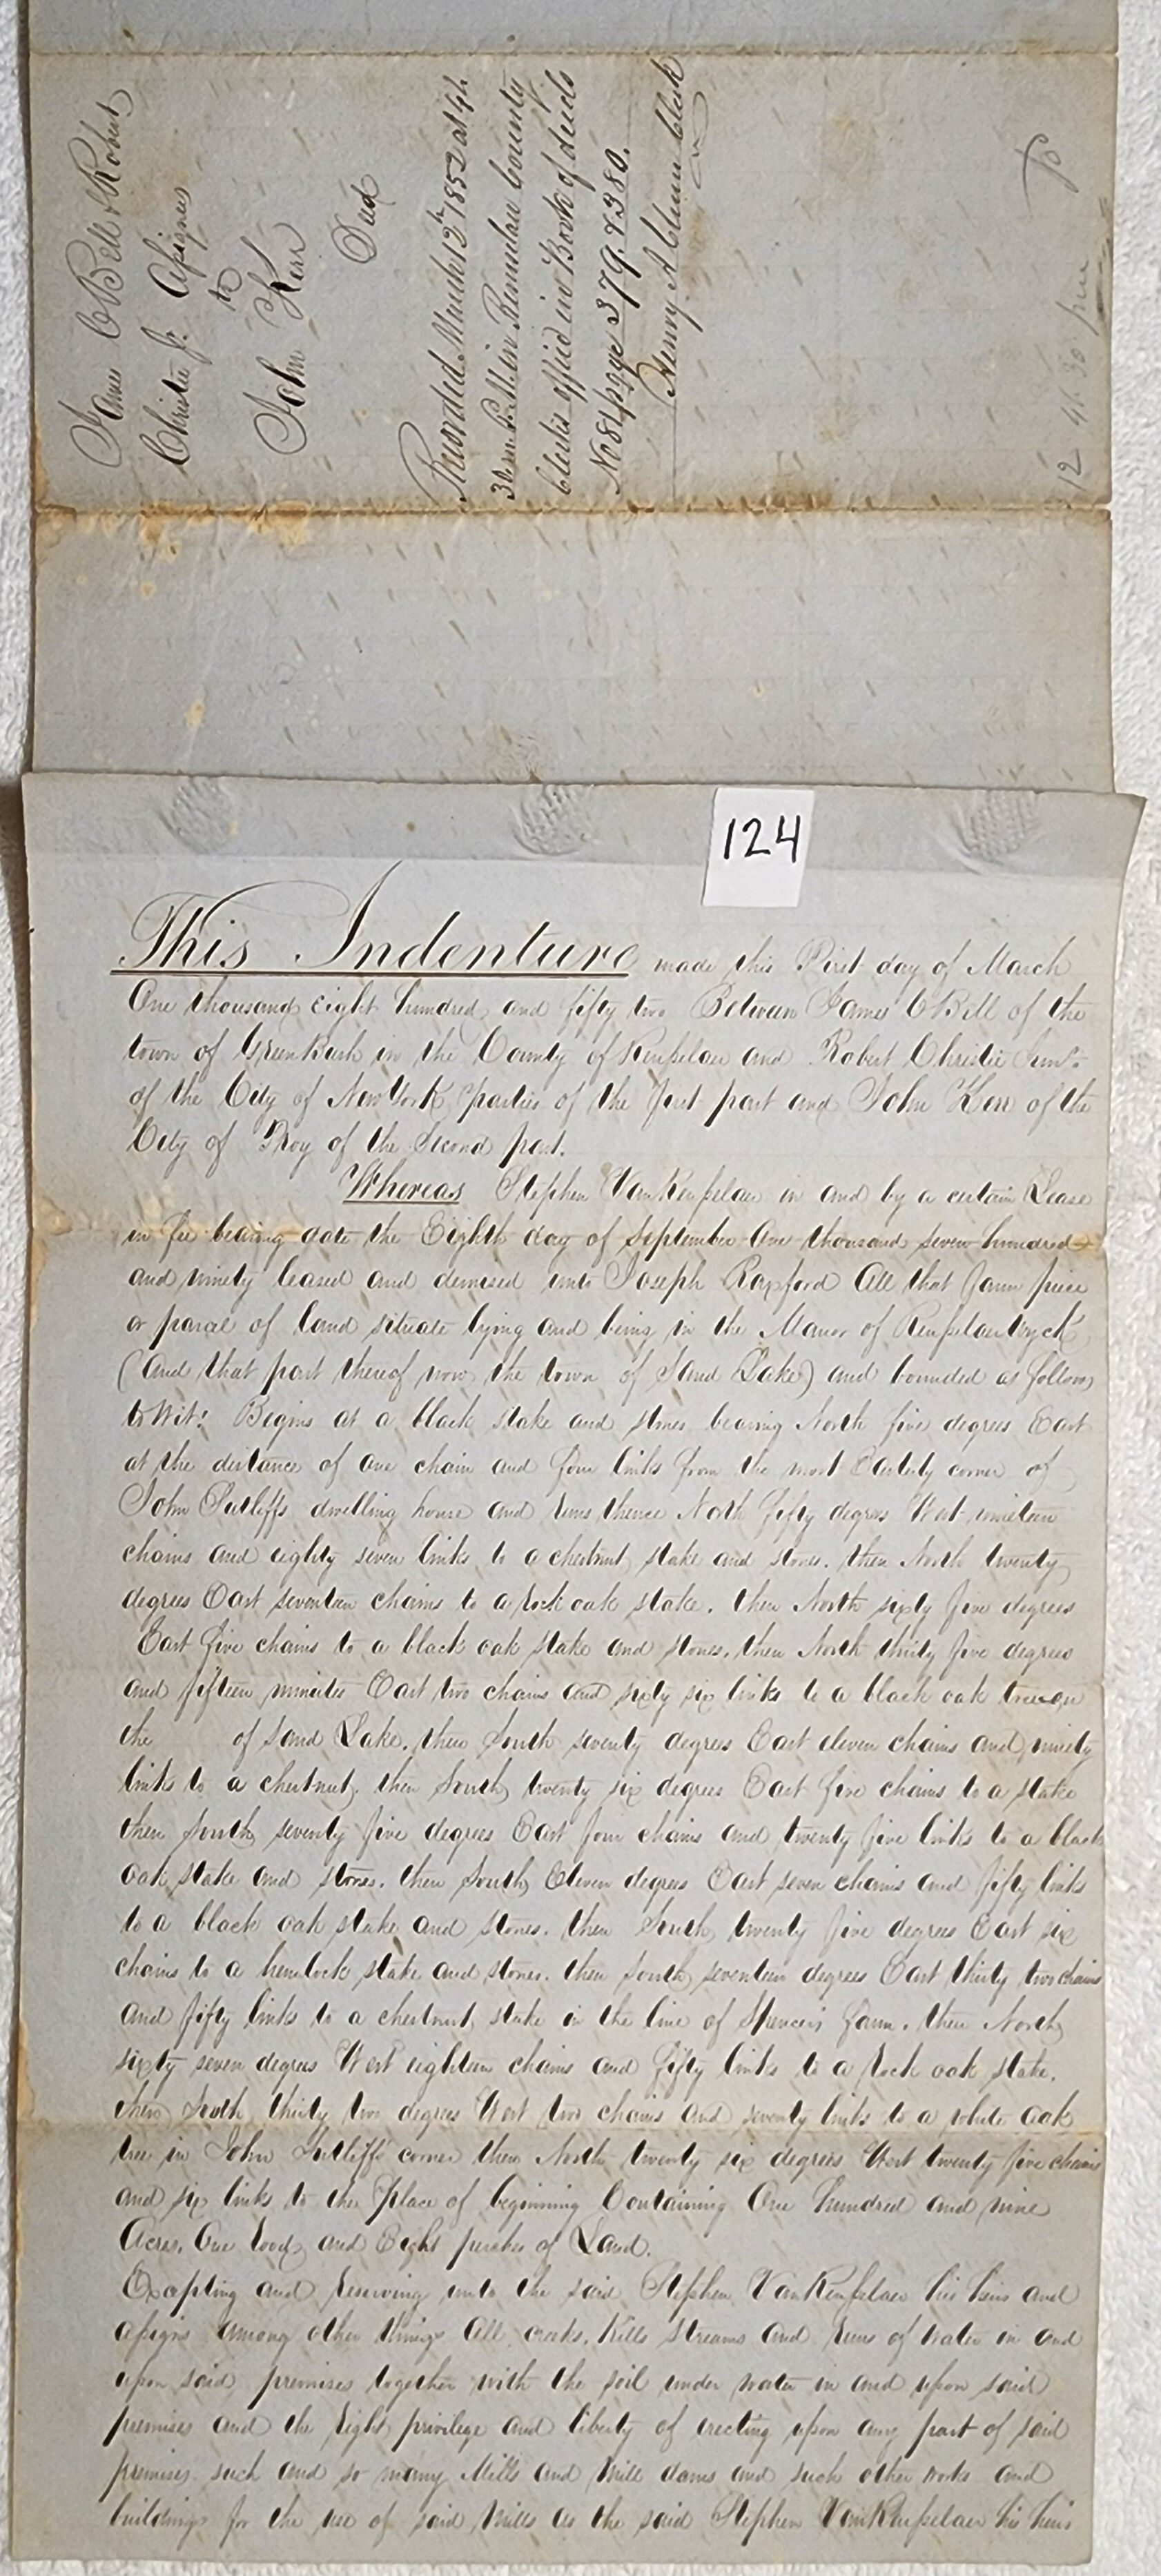 James C Bell & Robert
Christie Jr. Assignees
to
John Kerr
Deed
Recorded March 12th 1852 at 4h
30m P.M. in Rensselaer County
Clerks office in Book of deeds
No 81 page 379. & 380.
Henry A Clum Clerk
12 4h 30 pm
124
This Indenture made this First day of March
One thousand eight hundred and fifty two Between James C Bell of the
town of GreenBush in the County of Rensselaer and Robert Christie Junr.
of the City of New York parties of the first part and John Kerr of the
City of Troy of the Second part.
Whereas Stephen Van Rensselaer in and by a certain Lease
in fee bearing date the Eighth day of September One thousand seven hundred
and ninety leased and demised unto Joseph Roxford All that farm piece
or parcel of land situate lying and being in the Manor of Rensselaerwyck
(and that part thereof now the town of Sand Lake) and bounded as follows
to Wit: Begins at a black stake and stones bearing North five degrees East
at the distance of one chain and four links from the most Easterly corner of
John Sutliffs dwelling house and runs thence North fifty degrees West nineteen
chains and eighty seven links to a chestnut stake and stones. then North twenty
degrees East seventeen chains to a rock oak stake. then North sixty five degrees
East five chains to a black oak stake and stones, then North thirty five degrees
and fifteen minutes East two chains and sixty six links to a black oak tree on
the of Sand Lake. then South seventy degrees East eleven chains and ninety
links to a chestnut. then South twenty six degrees East five chains to a stake
then South seventy five degrees East four chains and twenty five links to a black
oak stake and stones. then South Eleven degrees East seven chains and fifty links
to a black oak stake and stones. then South twenty five degrees East six
chains to a hemlock stake and stones. then South seventeen degrees East thirty two chains
and fifty links to a chestnut stake in the line of Spencers farm. then North
sixty seven degrees West eighteen chains and fifty links to a rock oak stake.
then South thirty two degrees West two chains and seventy links to a white oak
tree in John Sutliffs corner then North twenty six degrees West twenty five chains
and six links to the Place of beginning Containing One hundred and nine
Acres. One rood, and Eight perches of Land.
Excepting and reserving unto the said Stephen Van Rensselaer his heirs and
assigns among other things all creeks. Kills streams and runs of water in and
upon said premises together with the soil under water in and upon said
premises and the right privilege and liberty of erecting upon any part of said
premises such and so many Mills and Mill dams and such other works and
buildings for the use of said Mills as the said Stephen Van Rensselaer his heirs